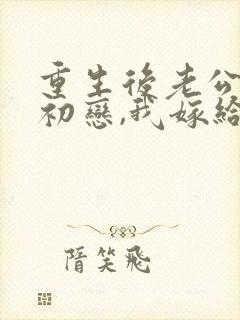 重生後老公
初戀,我嫁給
隋笑飛